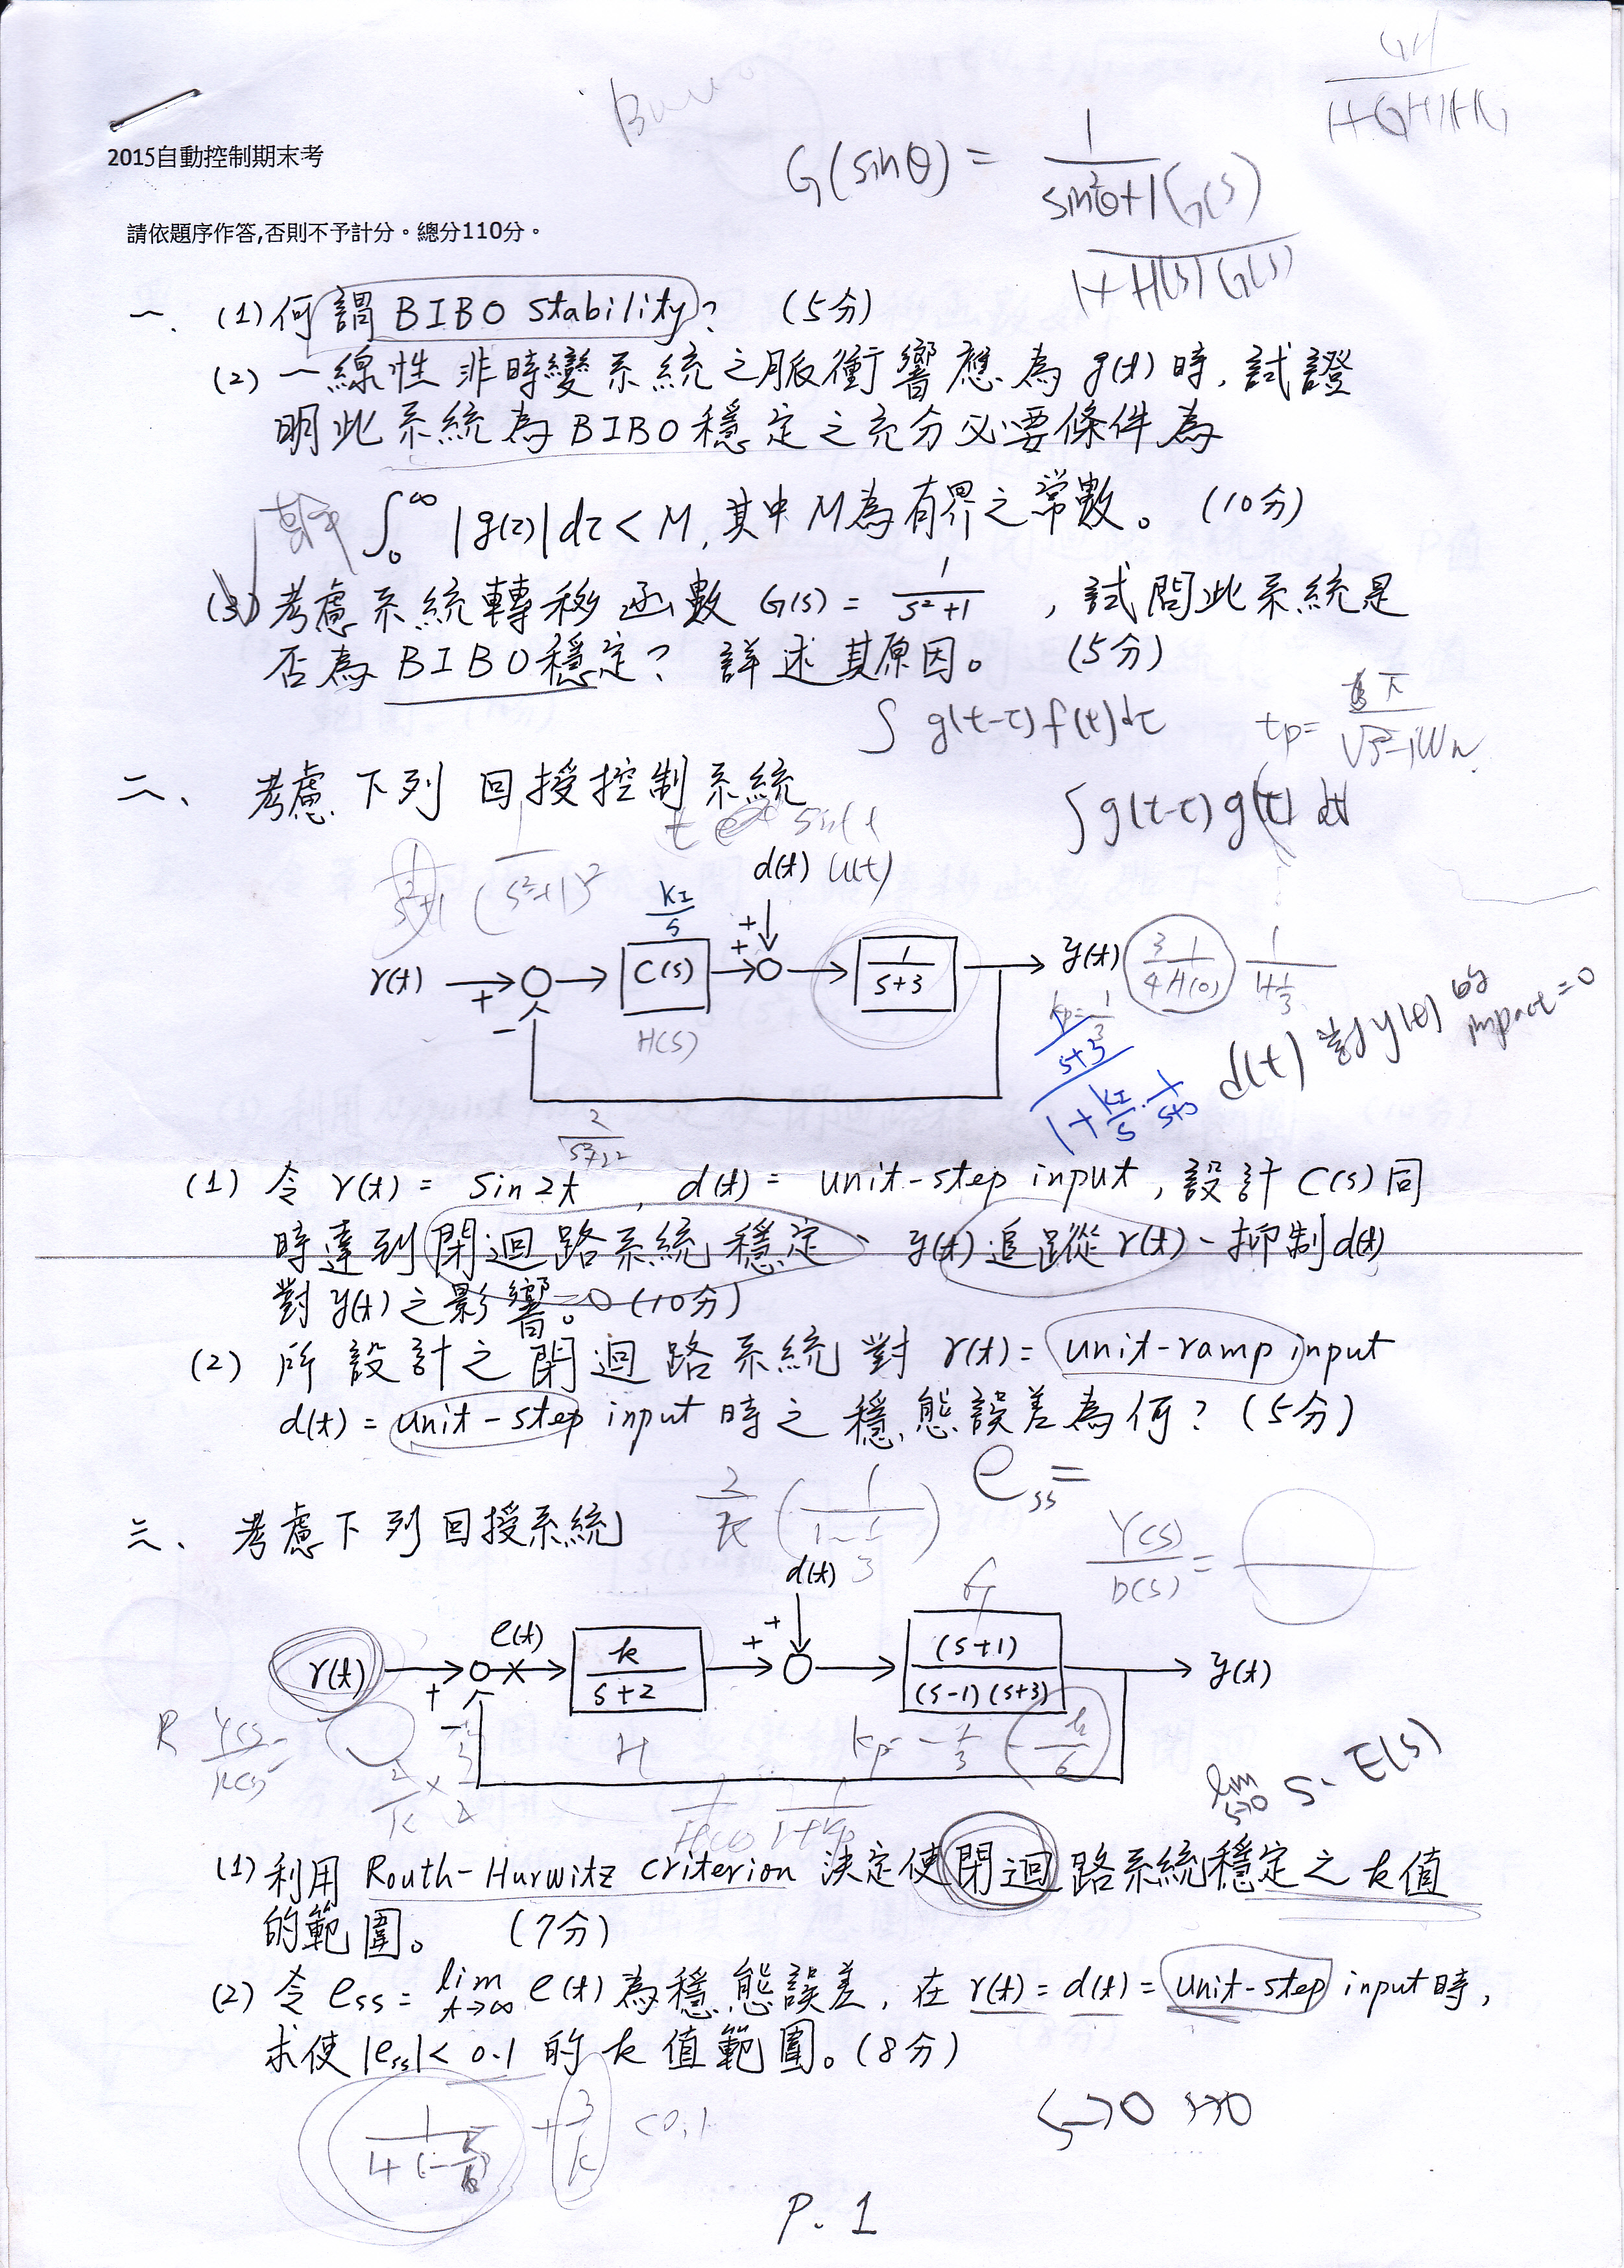 2015自動控制期末考
請依題序作答,否則不予計分。總分110分。
G(sinθ) = 1/(sin²θ+1)
G(s)/(1+H(s)G(s))
一、(1)何謂BIBO stability? (5分)
(2)一線性非時變系統之脈衝響應為g(t)時,試證
明此系統為BIBO穩定之充分必要條件為
∫₀^∞ |g(τ)|dτ < M,其中M為有界之常數。(10分)
(3)考慮系統轉移函數 G(s) = 1/(s²+1) ,試問此系統是
否為BIBO穩定? 詳述其原因。 (5分)
∫ g(t-τ) f(t) dτ
∫ g(t-τ) g(t) dt
二、考慮下列回授控制系統
1/(s²+1)²
d(t) u(t)
kI/s
r(t) + − C(s) + + 1/(s+3) y(t)
H(s)
d(t) 對 y(t) impact=0
1/(s+3) / (1+ kI/s · 1/(s+3))
2/(s²+2²)
(1) 令 r(t) = sin2t , d(t) = unit-step input, 設計C(s)同
時達到閉迴路系統穩定、y(t)追蹤r(t)、抑制d(t)
對y(t)之影響。=0 (10分)
(2) 所設計之閉迴路系統對 r(t) = unit-ramp input
d(t) = unit-step input 時之穩態誤差為何? (5分)
e_ss =
三、考慮下列回授系統
Y(s)/D(s) =
d(t)
G
r(t) + − e(t) k/(s+2) + + (s+1)/((s-1)(s+3)) y(t)
H
kp = -1/3
-k/6
lim s→0 s·E(s)
(1)利用 Routh-Hurwitz criterion 決定使閉迴路系統穩定之k值
的範圍。 (7分)
(2) 令 e_ss = lim t→∞ e(t) 為穩態誤差, 在 r(t) = d(t) = unit-step input時,
求使 |e_ss| < 0.1 的k值範圍。(8分)
+ 3/k < 0.1
P. 1